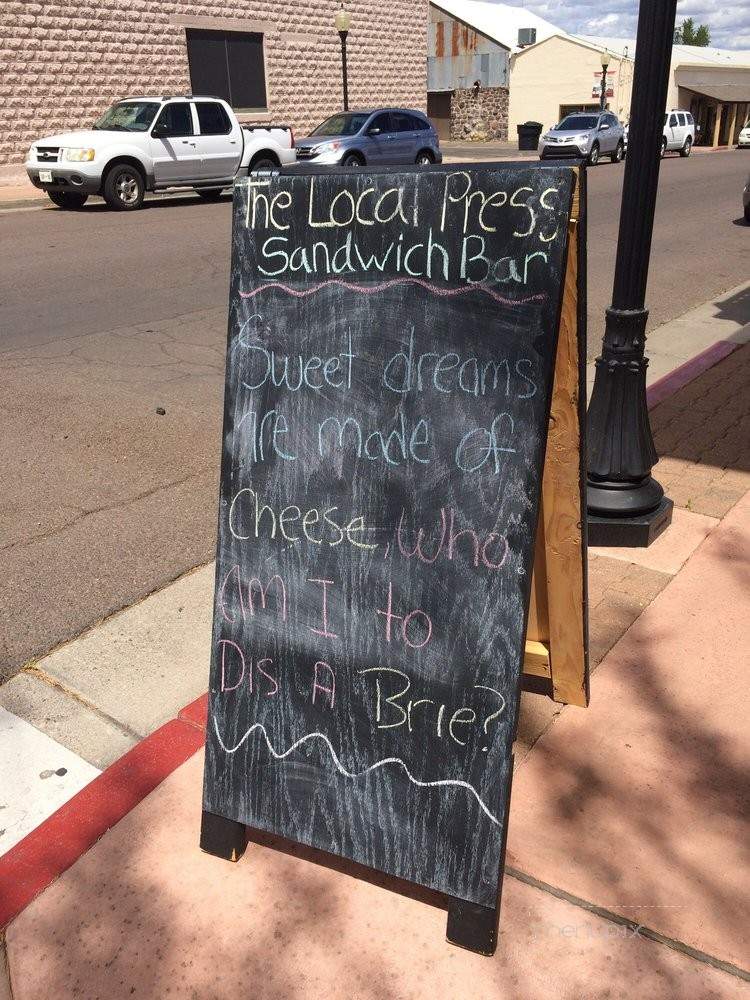 The Local Press
Sandwich Bar
Sweet dreams
Are made of
Cheese, Who
Am I to
Dis A Brie?
menupix